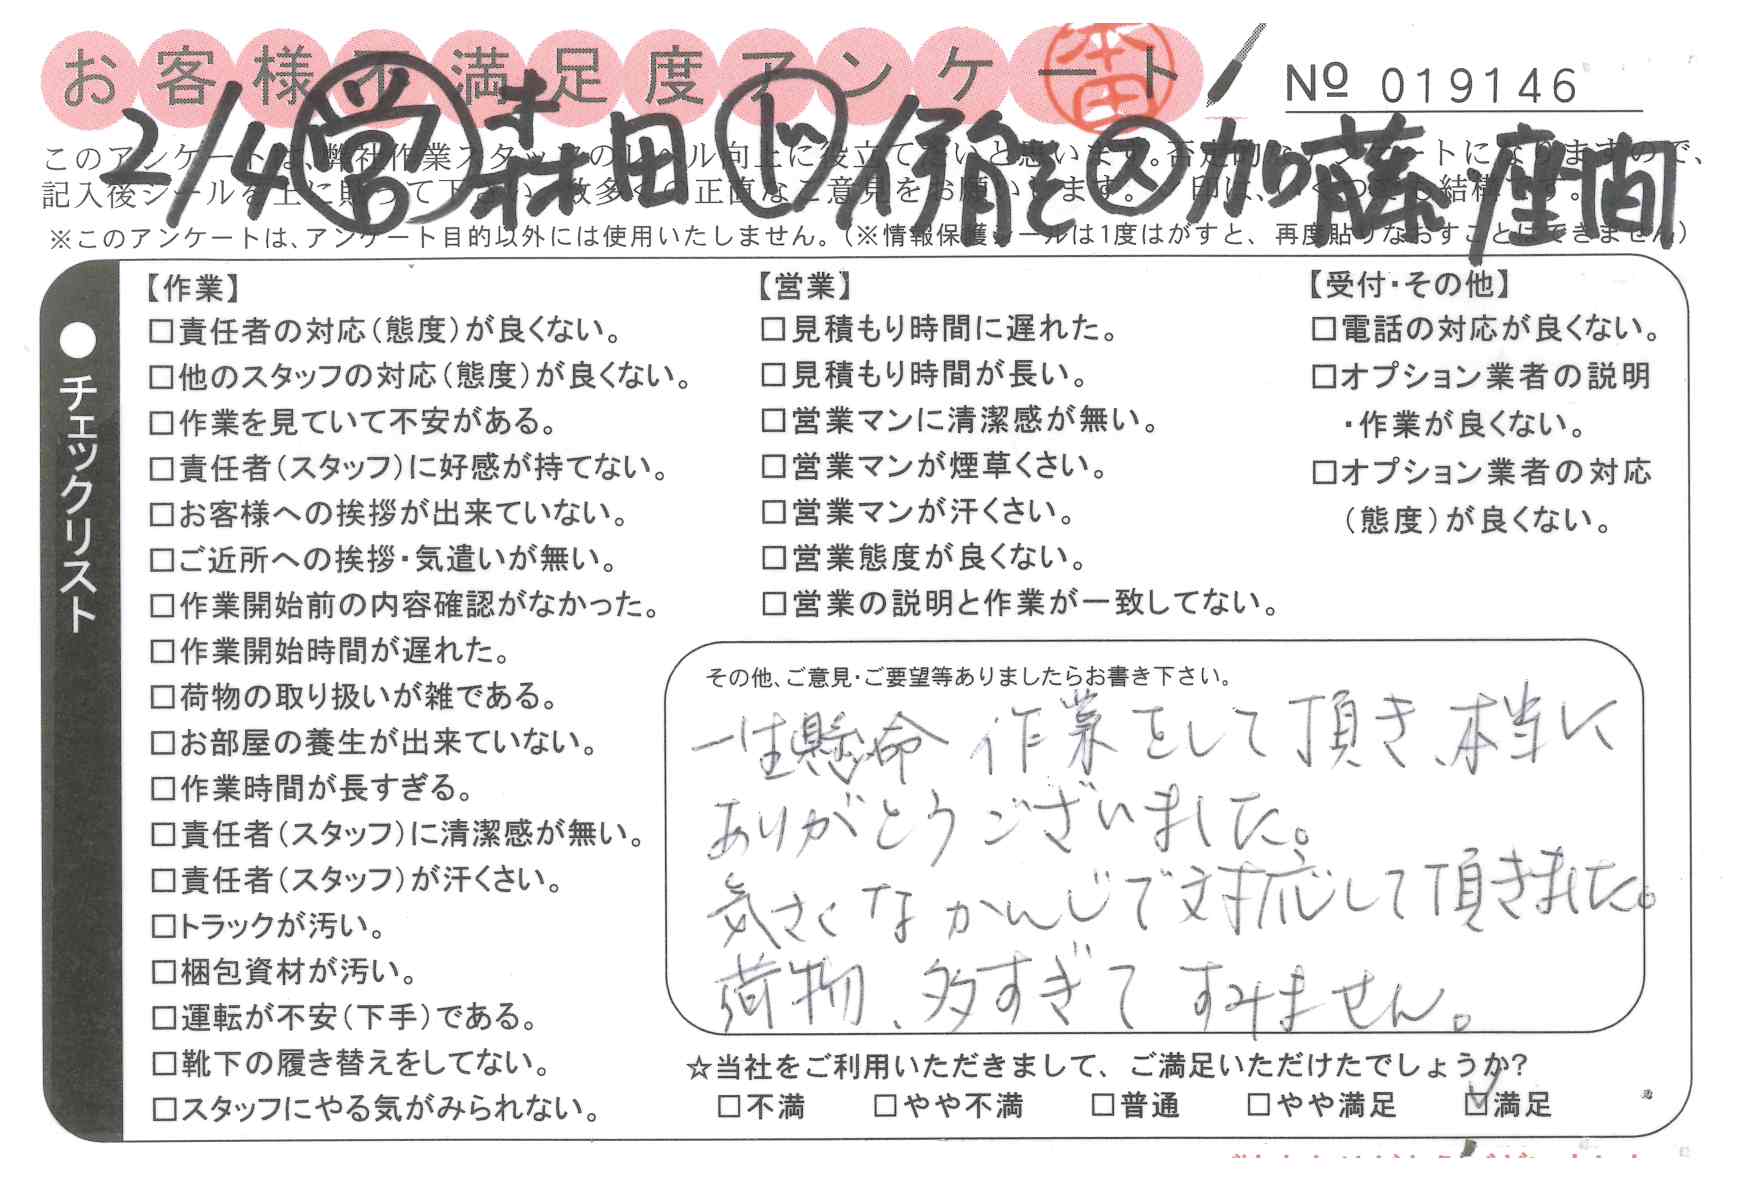 お客様不満足度アンケート
本田
№ 019146
2/4 営 森田 ㋛ 備能 ㋜ 加藤・座間
このアンケートは、弊社作業スタッフのレベル向上に役立てたいと思います。否定的なアンケートになりますので、
記入後シールを上に貼って下さい。数多くの正直なご意見をお願いします。
※このアンケートは、アンケート目的以外には使用いたしません。(※情報保護シールは1度はがすと、再度貼りなおすことはできません)
●チェックリスト
【作業】
□責任者の対応(態度)が良くない。
□他のスタッフの対応(態度)が良くない。
□作業を見ていて不安がある。
□責任者(スタッフ)に好感が持てない。
□お客様への挨拶が出来ていない。
□ご近所への挨拶・気遣いが無い。
□作業開始前の内容確認がなかった。
□作業開始時間が遅れた。
□荷物の取り扱いが雑である。
□お部屋の養生が出来ていない。
□作業時間が長すぎる。
□責任者(スタッフ)に清潔感が無い。
□責任者(スタッフ)が汗くさい。
□トラックが汚い。
□梱包資材が汚い。
□運転が不安(下手)である。
□靴下の履き替えをしてない。
□スタッフにやる気がみられない。
【営業】
□見積もり時間に遅れた。
□見積もり時間が長い。
□営業マンに清潔感が無い。
□営業マンが煙草くさい。
□営業マンが汗くさい。
□営業態度が良くない。
□営業の説明と作業が一致してない。
【受付・その他】
□電話の対応が良くない。
□オプション業者の説明
・作業が良くない。
□オプション業者の対応
(態度)が良くない。
その他、ご意見・ご要望等ありましたらお書き下さい。
一生懸命 作業をして頂き、本当に
ありがとうございました。
気さくなかんじで対応して頂きました。
荷物、多すぎて すみません。
☆当社をご利用いただきまして、ご満足いただけたでしょうか?
□不満 □やや不満 □普通 □やや満足 ☑満足